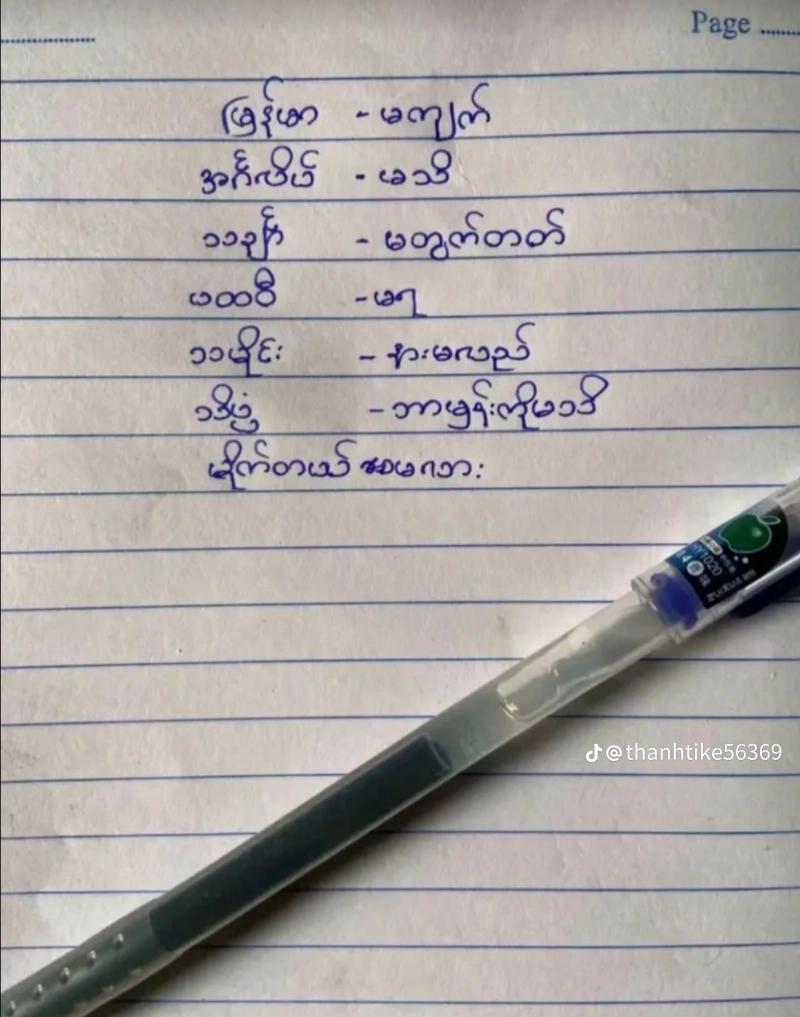 Page
မြန်မာ - မကျက်
အင်္ဂလိပ် - မသိ
သင်္ချာ - မတွက်တတ်
ပထဝီ - မရ
သမိုင်း - နားမလည်
သိပ္ပံ - ဘာမှန်းကိုမသိ
မိုက်တယ် ဆမဂဘး
@thanhtike56369
HY1020